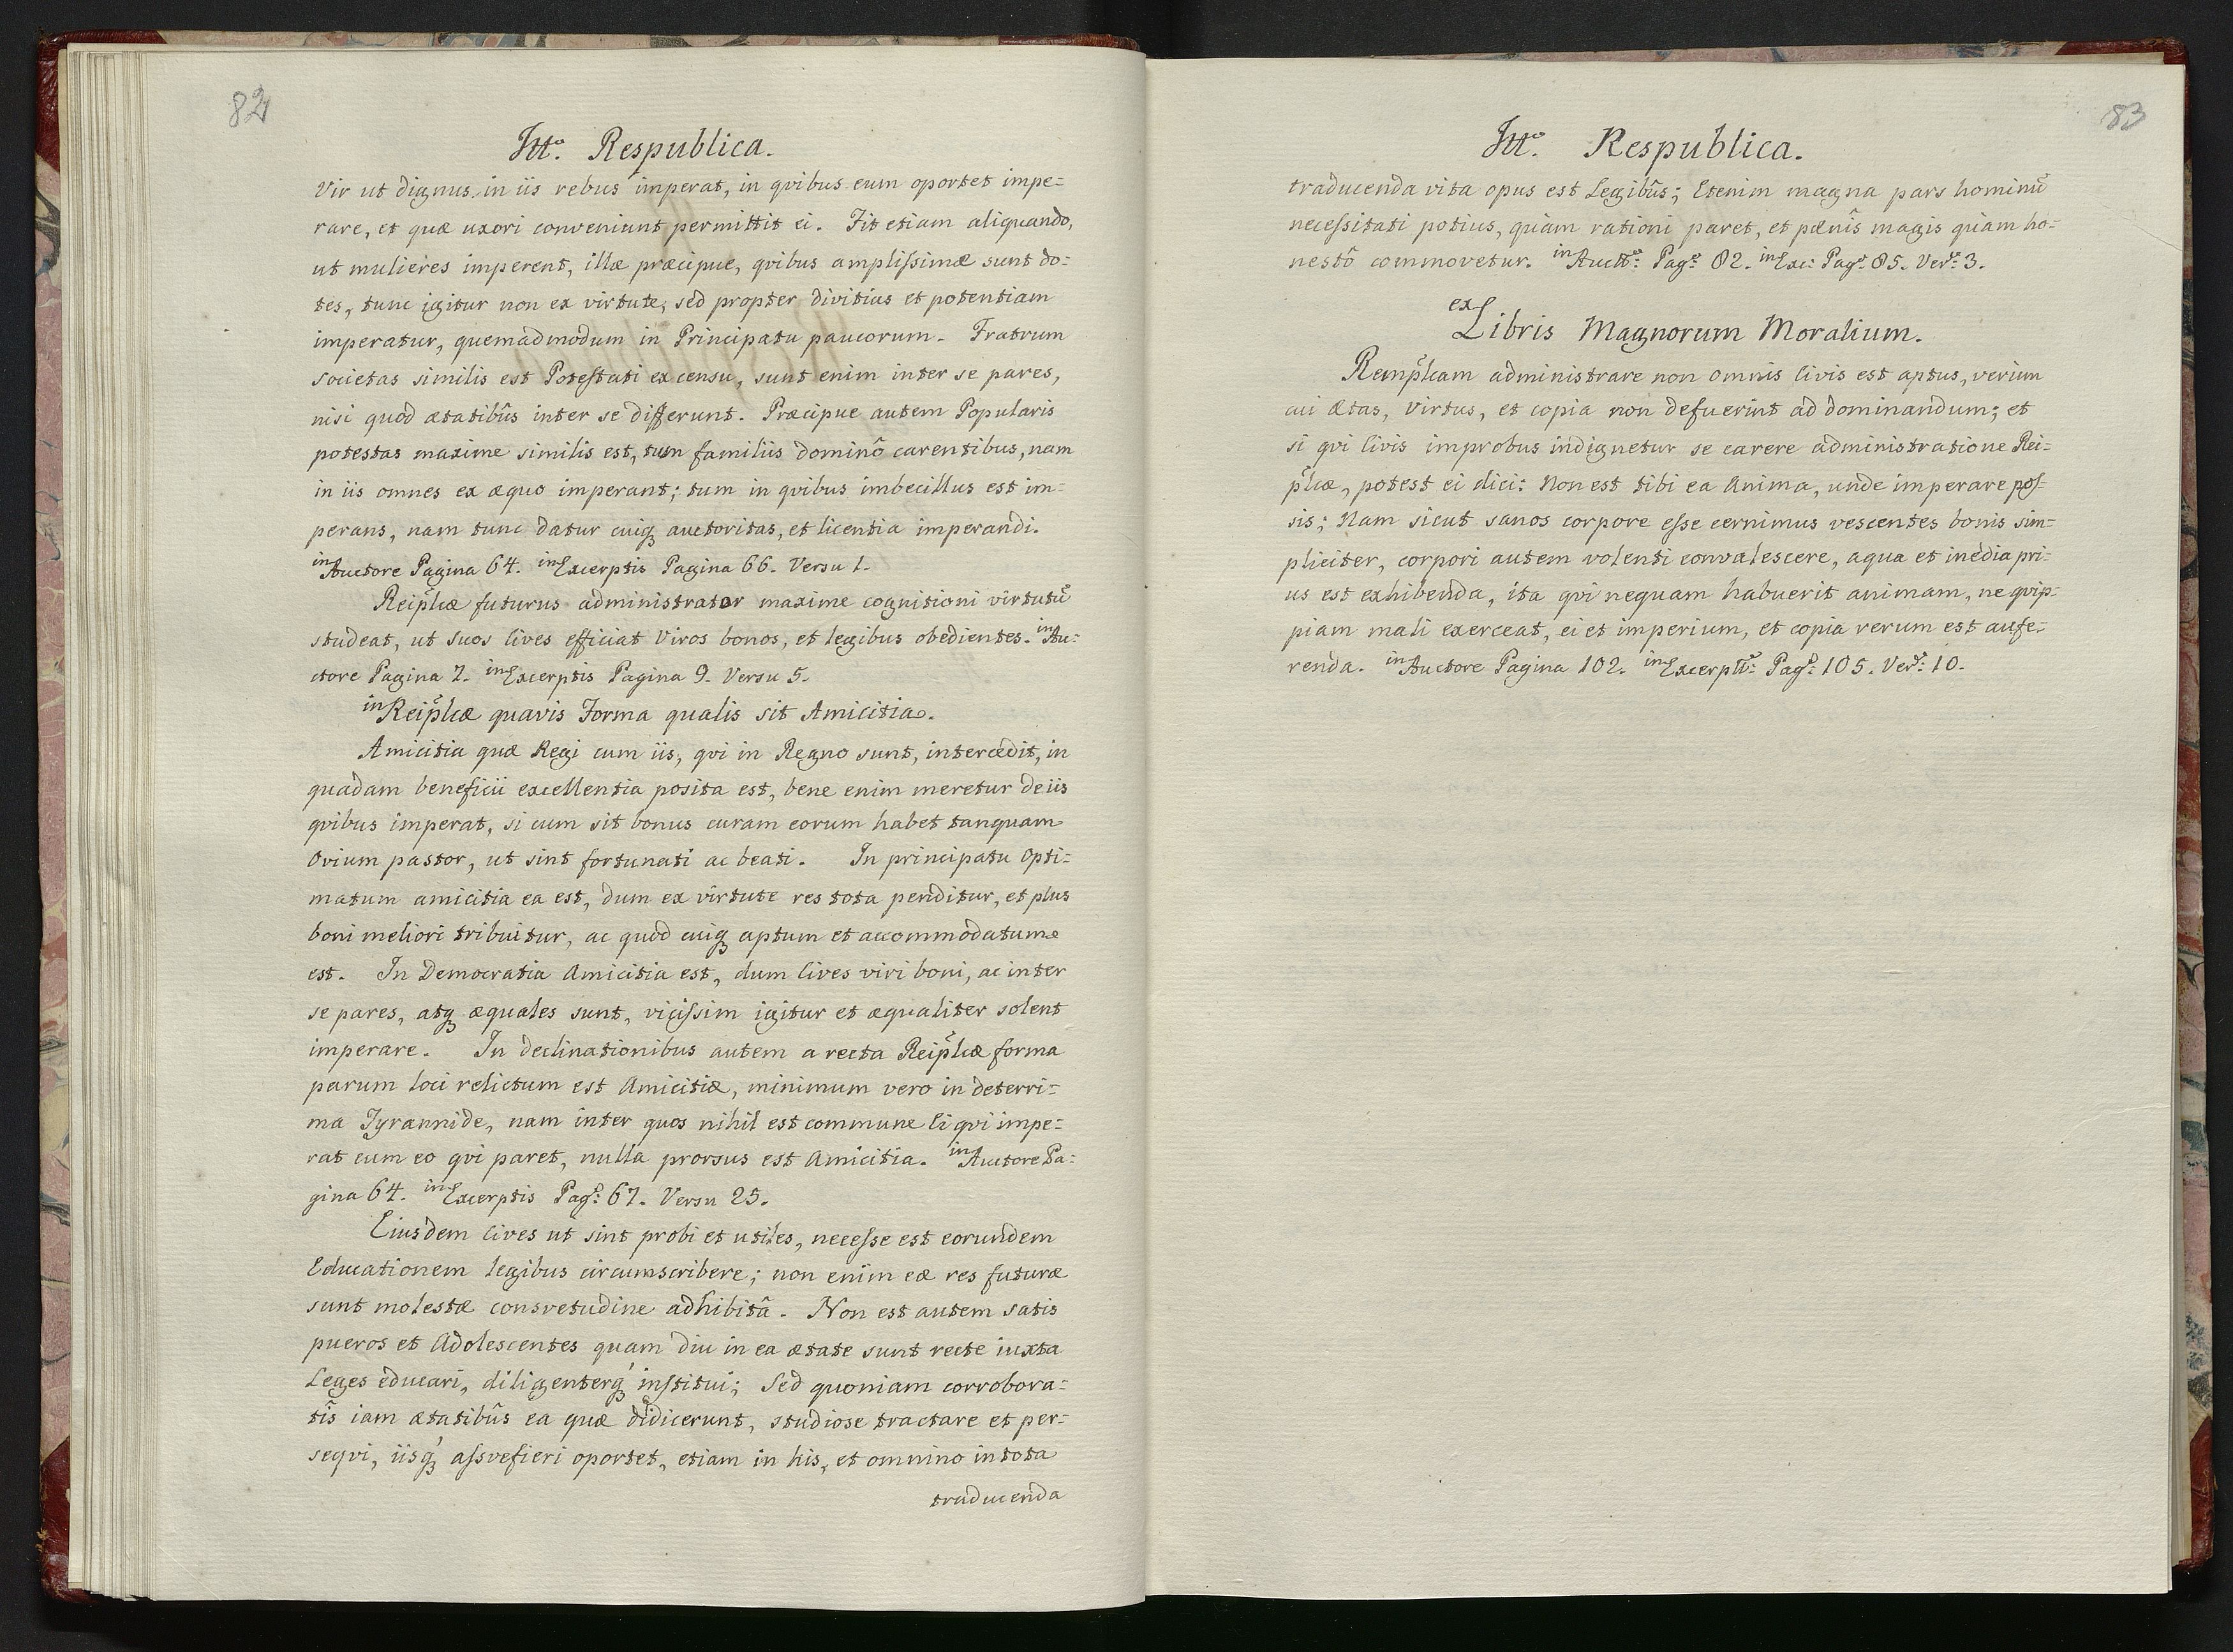 82
Itt.º Respublica.
Vir ut dignus in iis rebus imperat, in qvibus eum oportet impe=
rare, et quæ uxori conveniunt permittit ei. Fit etiam aliquando,
ut mulieres imperent, illæ præcipue, qvibus amplissimæ sunt do=
tes, tunc igitur non ex virtute, sed propter divitias et potentiam
imperatur, quemadmodum in Principatu paucorum. Fratrum
societas similis est Potestati ex censu, sunt enim inter se pares,
nisi quod ætatibûs inter se differunt. Præcipue autem Popularis
potestas maxime similis est, tum familiis dominô carentibus, nam
in iis omnes ex æquo imperant; tum in qvibus imbecillus est im=
perans, nam tunc datur cuiq auctoritas, et licentia imperandi.
in Auctore Pagina 64. in Excerptis Pagina 66. Versu 1.
Reip̃licæ futurus administrator maxime cognitioni virtutū
studeat, ut suos Cives efficiat Viros bonos, et legibus obedientes. in Au=
ctore Pagina 7. in Excerptis Pagina 9. Versu 5.
in Reip̃licæ quavis Forma qualis sit Amicitia.
Amicitia quæ Regi cum iis, qvi in Regno sunt, intercedit, in
quadam beneficii excellentia posita est, bene enim meretur de iis
qvibus imperat, si cum sit bonus curam eorum habet tanquam
Ovium pastor, ut sint fortunati ac beati. In principatu Opti=
matum amicitia ea est, dum ex virtute res tota penditur, et plus
boni meliori tribuitur, ac quod cuiq aptum et accommodatum
est. In Democratia Amicitia est, dum Cives viri boni, ac inter
se pares, atq æquales sunt, vicissim igitur et æqualiter solent
imperare. In declinationibus autem a recta Reip̃licæ forma
parum loci relictum est Amicitiæ, minimum vero in deterri=
ma Tyrannide, nam inter quos nihil est commune Ei qvi impe=
rat cum eo qvi paret, nulla prorsus est Amicitia. in Auctore Pa=
gina 64. in Excerptis Pag: 67. Versu 25.
Eiusdem Cives ut sint probi et utiles, necesse est eorundem
Educationem legibus circumscribere; non enim eæ res futuræ
sunt molestæ consvetudine adhibitâ. Non est autem satis
pueros et Adolescentes quam diu in ea ætate sunt recte iuxta
Leges educari, diligenterq́ institui; Sed quoniam corrobora=
tîs iam ætatibûs ea quæ didicerunt, studiose tractare et per=
seqvi, iisq́ assvefieri oportet, etiam in his, et omnino in tota
traducenda
83
Itt.º Respublica.
traducenda vita opus est Legibûs; Etenim magna pars hominū
necessitati potius, quàm rationi paret, et pænîs magis quàm ho=
nestô commovetur. in Auctt: Pag: 82. in Exc: Pag: 85. Ver: 3.
ex Libris Magnorum Moralium.
Remp̃licam administrare non omnis Civis est aptus, verum
cui Ætas, Virtus, et copia non defuerint ad dominandum; et
si qvi Civis improbus indignetur se carere administratione Rei=
p̃licæ, potest ei dici: Non est tibi ea Anima, unde imperare pos=
sis; Nam sicut sanos corpore esse cernimus vescentes bonis sim=
pliciter, corpori autem volenti convalescere, aqua et inedia pri=
us est exhibenda, ita qvi nequam habuerit animam, ne qvip=
piam mali exerceat, ei et imperium, et copia rerum est aufe=
renda. in Auctore Pagina 102. in Excerptt: Pag: 105. Ver: 10.